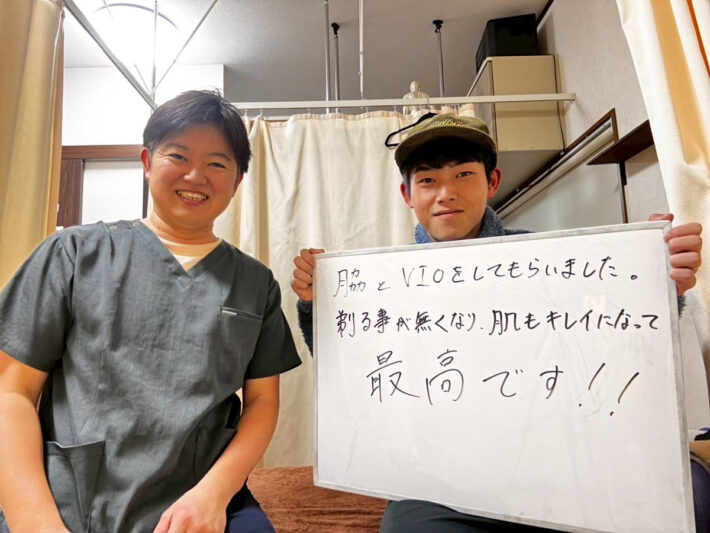 脇とVIOをしてもらいました。
剃る事が無くなり、肌もキレイになって
最高です!!